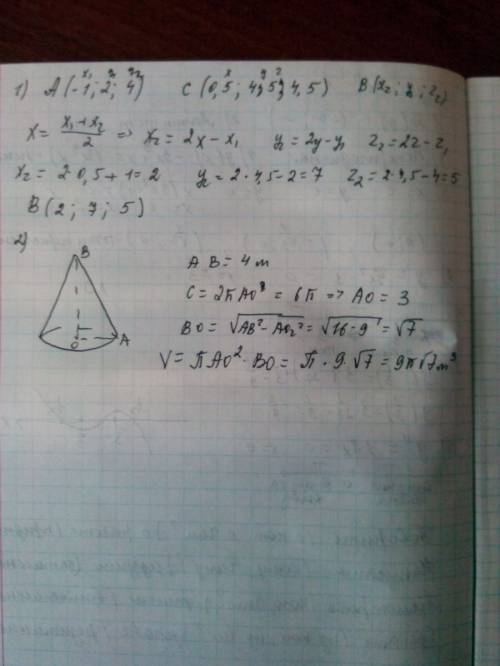 1) A(-1; 2; 4) C(0,5; 4,5; 4,5) B(x₂; y₂; z₂)
x = (x₁+x₂)/2 => x₂ = 2x - x₁ y₂ = 2y - y₁ z₂ = 2z - z₁
x₂ = 2·0,5 + 1 = 2 y₂ = 2·4,5 - 2 = 7 z₂ = 2·4,5 - 4 = 5
B(2; 7; 5)
2)
B
O
A
AB = 4 м
C = 2πAO = 6π => AO = 3
BO = √(AB² - AO²) = √(16-9) = √7
V = πAO²·BO = π·9·√7 = 9π√7 м³